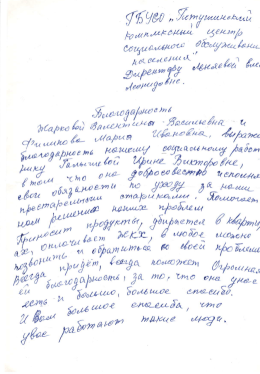 ГБУСО "Петушинский
комплексный центр
социального обслуживания
населения"
Директору
Леонидовне.
Благодарность
Жаркова Валентина Васильевна и
Филикова Мария Ивановна, выраже
благодарность нашему социальному работ
нику Галышевой Ирине Викторовне,
в том что она добросовестно исполня
свои обязаности по уходу за нами
престарелыми стариками. Помогает
нам решению наших проблем
Приносит продукты, убирается в кварти
ах, оплачивает ЖКХ, в любое можно
позвонить и обратиться со своей проблемо
Всегда придёт, всегда поможет Огромная
ей благодарность, за то, что она у нас
есть и большое, большое спасибо.
И Вам большое спасибо, что
у вас работают такие люди.